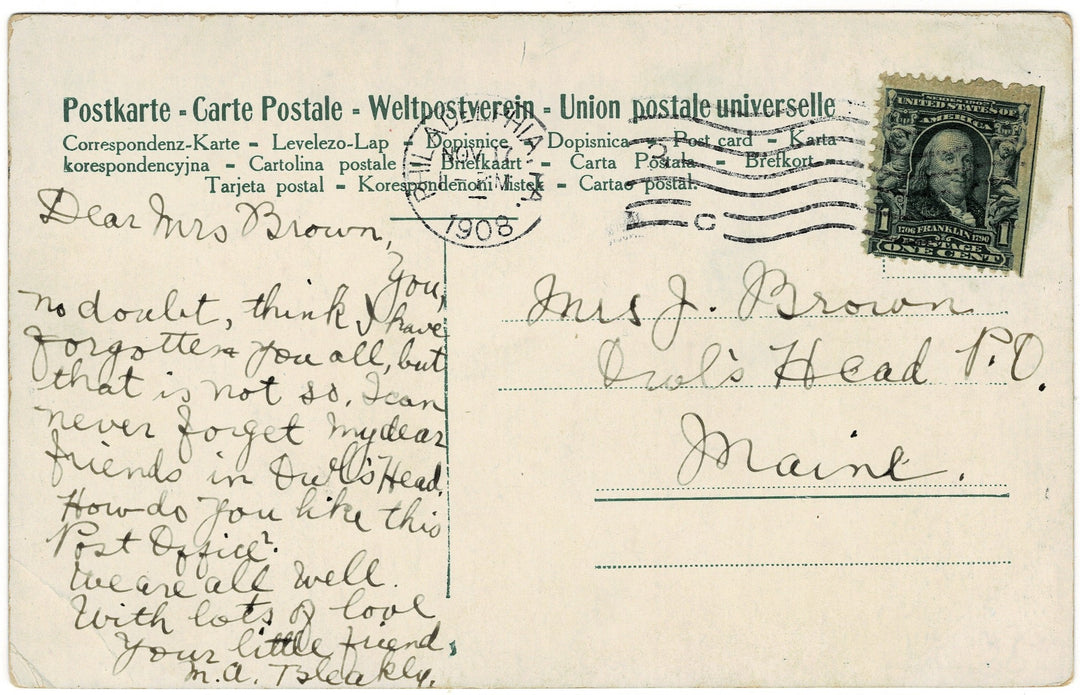 Postkarte - Carte Postale - Weltpostverein - Union postale universelle
Correspondenz-Karte - Levelezo-Lap - Dopisnice - Dopisnica - Post card - Karta
korespondencyjna - Cartolina postale - Briefkaart - Carta Postala - Brefkort
Tarjeta postal - Korespondenoni listek - Cartao postal.
PHILADELPHIA, PA.
NOV
1908
C
SERIES 1902
UNITED STATES OF
AMERICA
1706 FRANKLIN 1790
POSTAGE
1 1
ONE CENT
Dear Mrs Brown,
You,
no doubt, think I have
forgotten you all, but
that is not so. I can
never forget my dear
friends in Owl's Head.
How do you like this
Post Office?
We are all well.
With lots of love
Your little friend,
M. A. Bleakly.
Mrs J. Brown
Owl's Head P.O.
Maine.